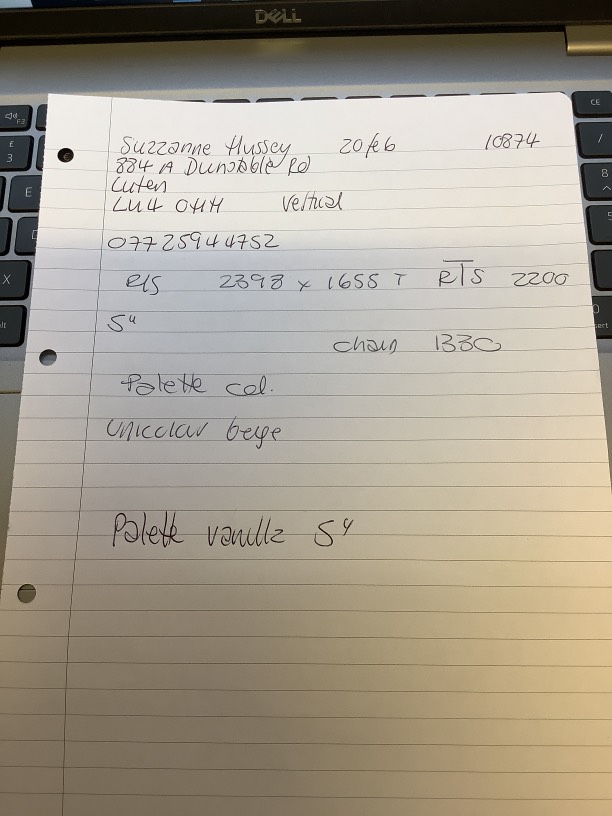 DELL
Suzzanne Hussey 20 feb 10874
884 A Dunstable Rd
Luten
LU4 0HH Vertical
07725944752
R/S 2398 x 1655 T RTS 2200
5"
chain 1330
Palette col.
Unicolour beige
Palette vanilla 5"